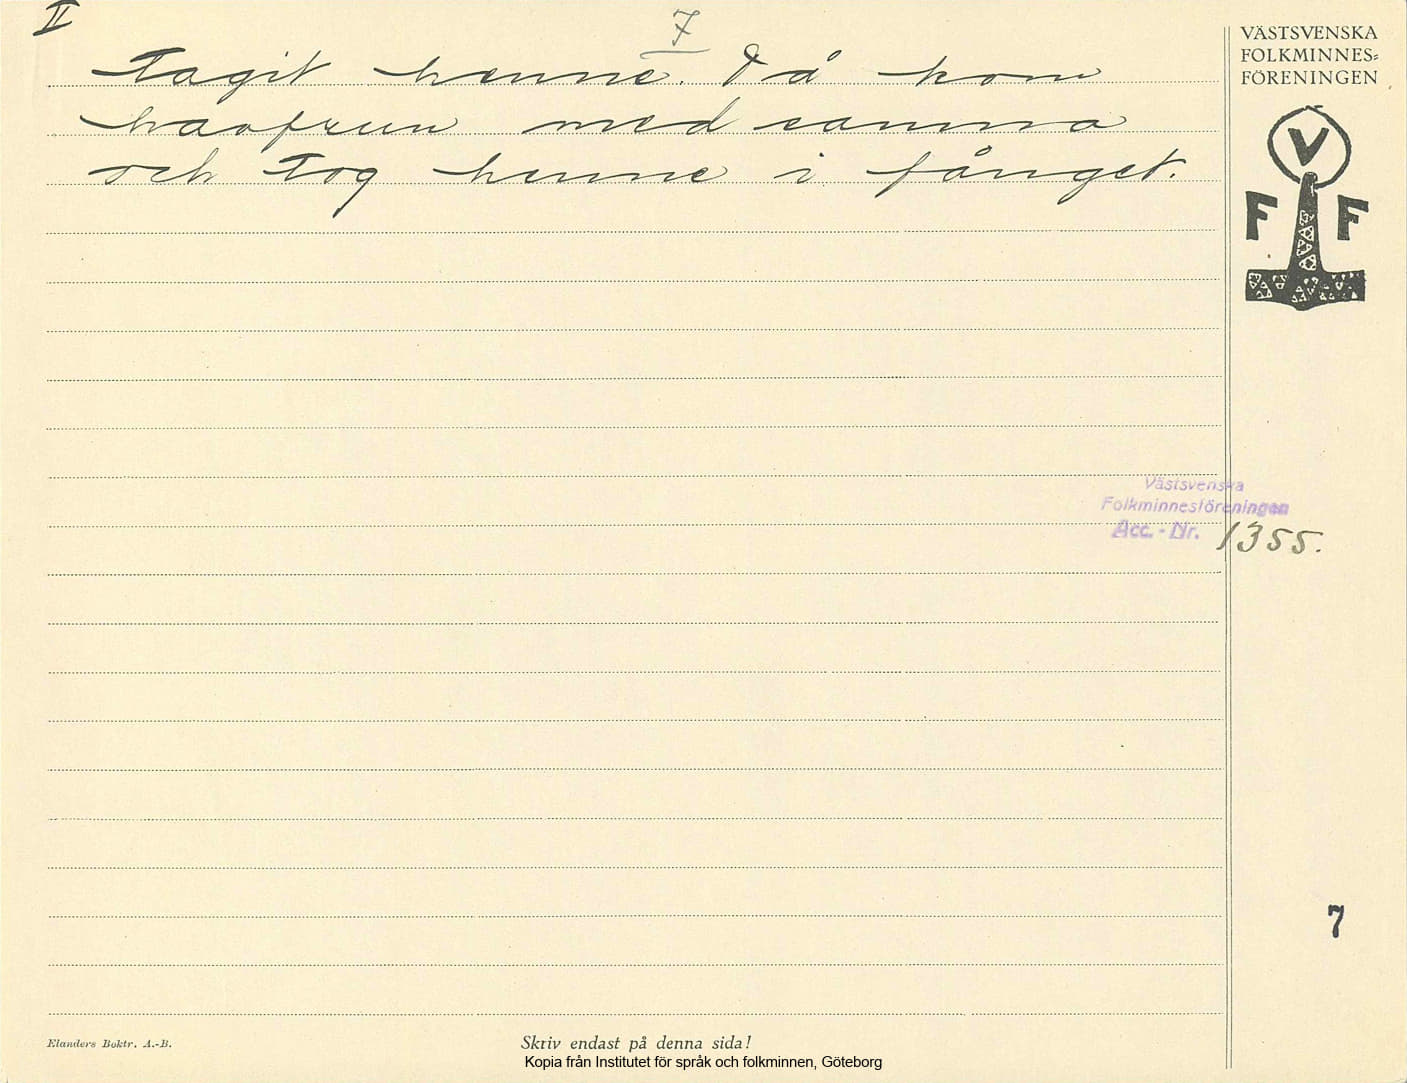 II
7
tagit henne. Då kom
havsfrun med samma
och tog henne i fånget.
VÄSTSVENSKA
FOLKMINNES=
FÖRENINGEN
V
F F
Västsvenska
Folkminnesföreningen
Acc. - Nr. 1355.
7
Elanders Boktr. A.-B.
Skriv endast på denna sida!
Kopia från Institutet för språk och folkminnen, Göteborg